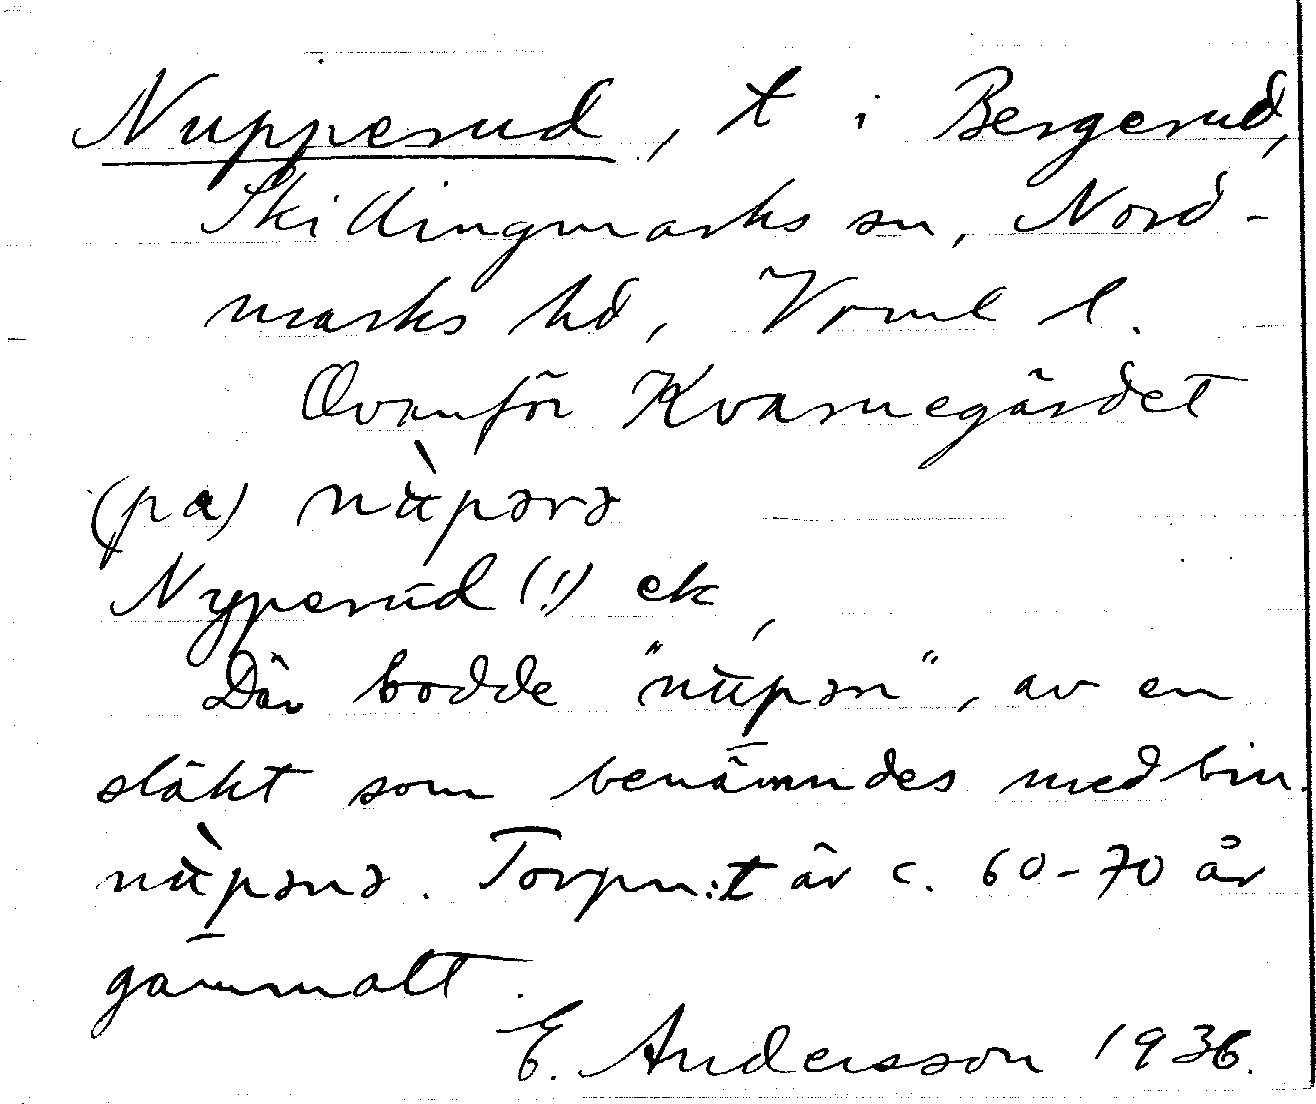 Nupperud, t i Bergerud,
Skillingmarks sn, Nord-
marks hd, Vrml l.
Ovanför Kvarnegärdet
(pa) nʉ̀pərə
Nyperud (!) ek
Där bodde "nʉpən", av en
släkt som benämndes med bin.
nʉ̀pənə. Torpn:t är c. 60-70 år
gammalt.
E. Andersson 1936.